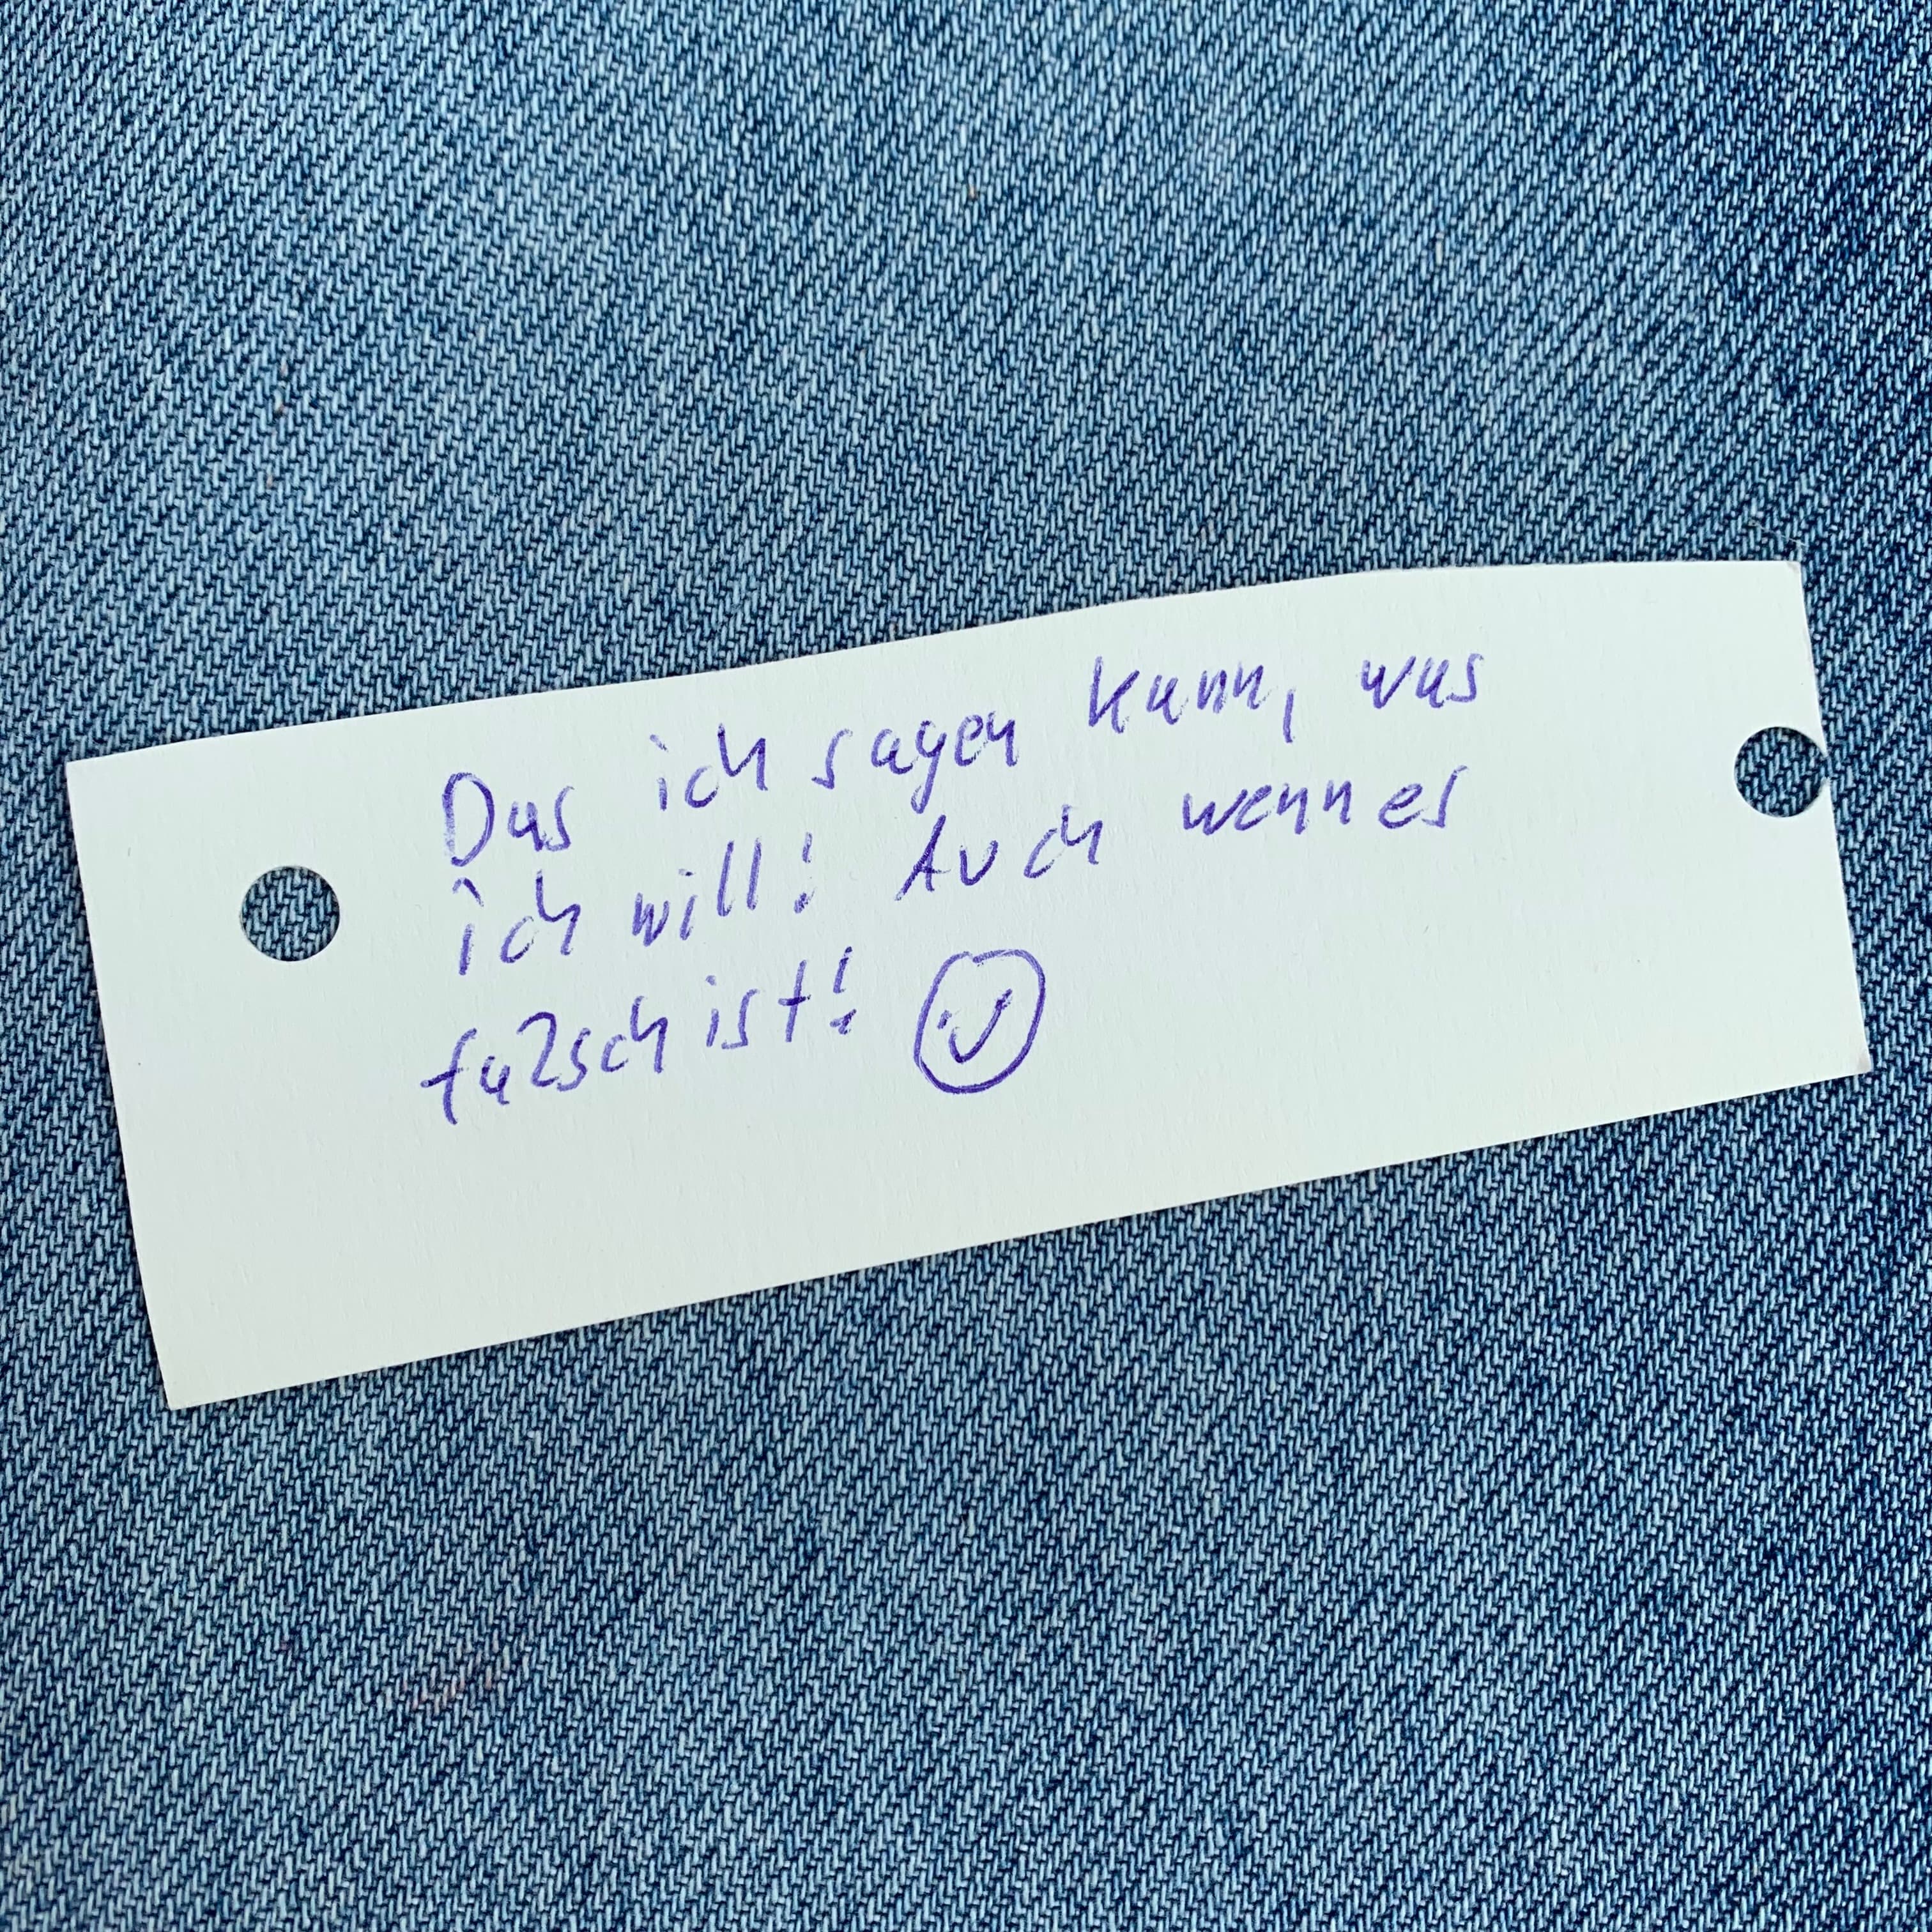 Das ich sagen kann, was
ich will! Auch wenn es
falsch ist!